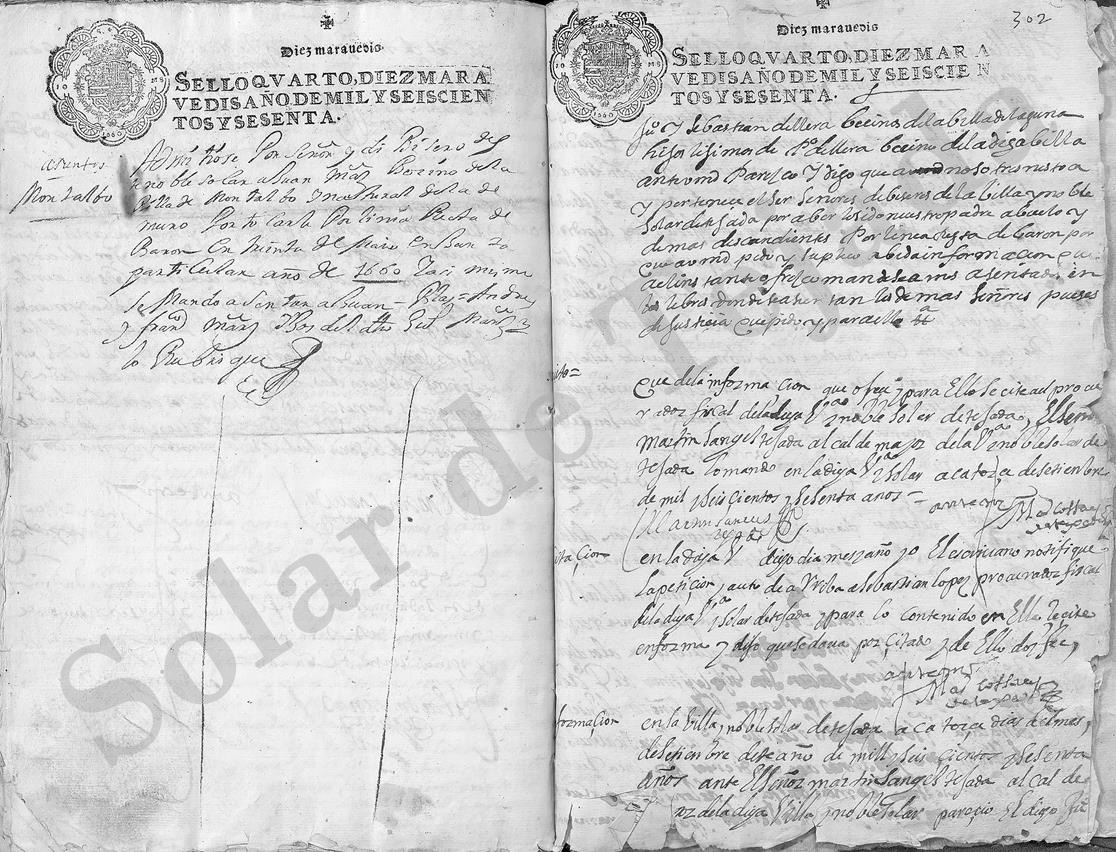 Diez maravedis
SELLO QVARTO, DIEZ MARA
VEDIS, AÑO DE MIL Y SEISCIEN
TOS Y SESENTA.
1660
asientos
Montalbo
Admitiose Por Señor y di Biseno deste
noble solar a Juan Mrz Vecino de la
Villa de Montalbo y natural de la de
muro Por to carle Por linia Recta de
Baron En treinta de Maio En Junta
particullar año de 1660 Y asi mismo
se Mando a Sentar a Juan = Blas = Andres
y franco Mrnz
lo Rubrique
Diez maravedis
302
SELLO QVARTO, DIEZ MARA
VEDIS, AÑO DE MIL Y SEISCIEN
TOS Y SESENTA.
1660
Juo Y Sebastian de llera becinos de la billa de laguna
hijos lijitimos de Po de llera becino de la dha billa
ante vmd Paresco Y digo que a nosotros nos toca
y pertenece el ser Señores debiseros de la billa y noble
Solar de tejada por aber lo sido nuestro padre abuelo y
demas descendientes Por linea Recta de baron por
que a vmd pido y suplico Reciba informacion que
al instante ofresco mandseamos asentados en
los libros donde se asientan los demas Señores pues es
de Justicia que pido y para ello
auto=
que de la informacion que ofrece y para Ello se cite al procu
rador fiscal de la dicha Va y noble Solar de tejada, El señor
martin Sanz el tejada alcalde mayor de la Va y noble solar de
tejada lo mando en la dicha Va y Solar a catorce de setiembre
de mil y seiscientos y sesenta años =
ante mi
Martin Sanz
tejada
citacion
en la dicha Va dicho dia mes y año yo El escrivano notifique
la peticion y auto de aRiba a Sebastian lopez procurador fiscal
de la dicha Va y Solar de tejada y para lo contenido en Ello le cite
en forma y dijo que se dava por citado y de Ello doy fee,
ante mi
formacion
en la Villa y noble Solar de tejada a catorce dias del mes
de setiembre deste año de mill y seiscientos y sesenta
años ante El señor martin Sanz el tejada alcalde
or de la dicha Villa y noble Solar parecio El dicho
Solar de Tejada